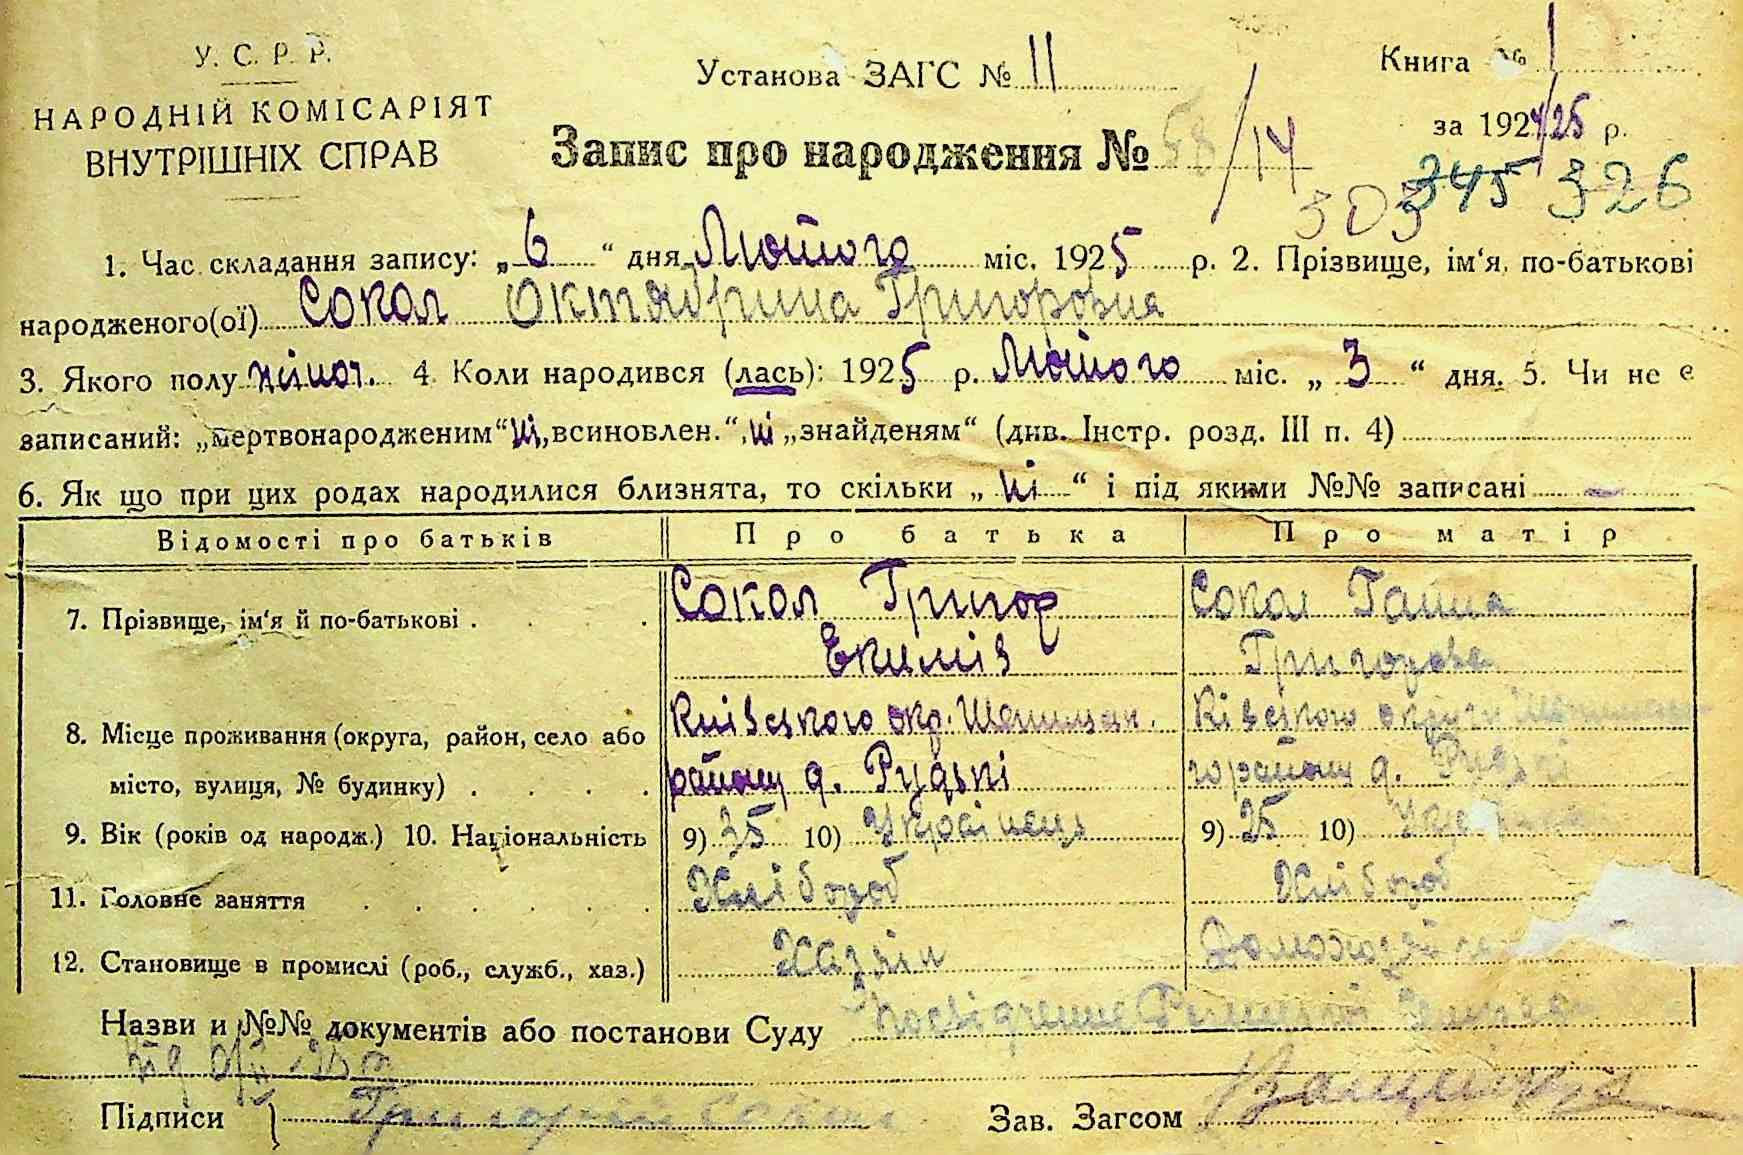 У. С. Р. Р.
НАРОДНІЙ КОМІСАРІЯТ
ВНУТРІШНІХ СПРАВ
Установа ЗАГС № 11
Книга № 1
за 1924/25 р.
Запис про народження № 58/14
303 345 326
1. Час складання запису: „6“ дня Лютого міс. 1925 р. 2. Прізвище, ім‘я, по-батькові
народженого(ої) Сокол Октябрина Григоровна
3. Якого полу жіноч. 4. Коли народився (лась): 1925 р. Лютого міс. „3“ дня. 5. Чи не є
записаний: „мертвонародженим“ ні, „всиновлен.“, ні „знайденям“ (див. Інстр. розд. III п. 4)
6. Як що при цих родах народилися близнята, то скільки „ні“ і під якими №№ записані –
Відомості про батьків Про батька Про матір
7. Прізвище, ім‘я й по-батькові . . . Сокол Григор Сокол Ганна
Екимів Григорова
8. Місце проживання (округа, район, село або Київського окр. Київського округи
місто, вулиця, № будинку) . . . . району д. Рудькі району д. Рудькі
9. Вік (років од народж.) 10. Національність 9) 35 10) Українець 9) 25 10)
11. Головне заняття . . . . . . Хлібороб Хлібороб
12. Становище в промислі (роб., служб., хаз.) Хазяїн
Назви и №№ документів або постанови Суду Посвідчення
від
Підписи } Григорій Сокол Зав. Загсом